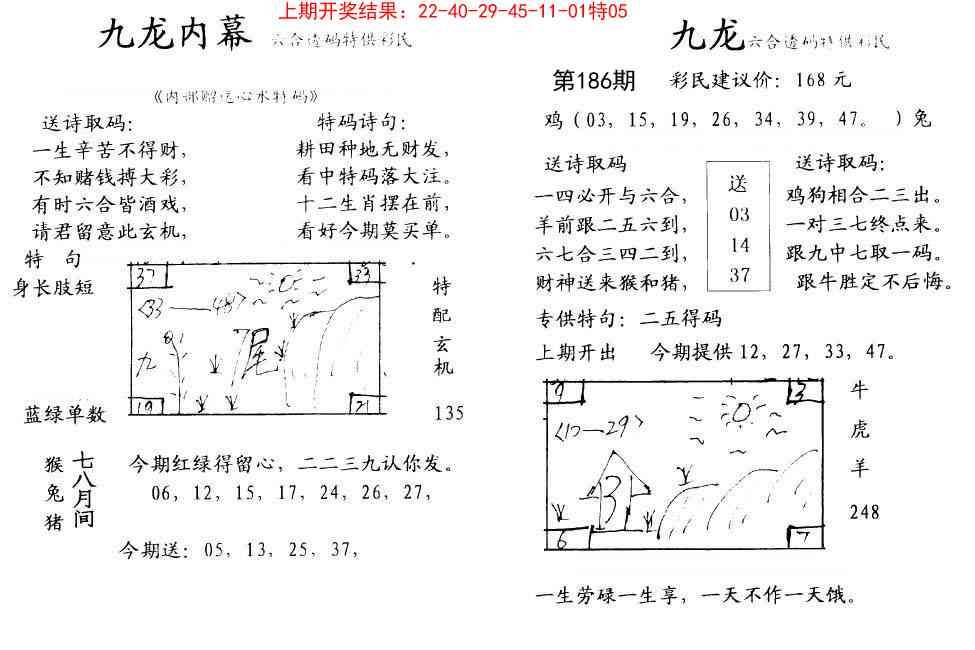 上期开奖结果：22-40-29-45-11-01特05
九龙内幕 六合透码特供彩民
《内部赠送心水特码》
送诗取码：
一生辛苦不得财，
不知赌钱搏大彩，
有时六合皆酒戏，
请君留意此玄机，
特码诗句：
耕田种地无财发，
看中特码落大注。
十二生肖摆在前，
看好今期莫买单。
特 句
身长肢短
蓝绿单数
37
33
<33——48>
九
尾
19
21
特配玄机
135
猴兔猪
七八月间
今期红绿得留心，二二三九认你发。
06，12，15，17，24，26，27，
今期送：05，13，25，37，
九龙六合透码特供彩民
第186期 彩民建议价：168元
鸡（03，15，19，26，34，39，47。 ）兔
送诗取码
一四必开与六合，
羊前跟二五六到，
六七合三四二到，
财神送来猴和猪，
送
03
14
37
送诗取码：
鸡狗相合二三出。
一对三七终点来。
跟九中七取一码。
跟牛胜定不后悔。
专供特句：二五得码
上期开出 今期提供12，27，33，47。
9
3
<17—29>
3
6
7
牛
虎
羊
248
一生劳碌一生享，一天不作一天饿。